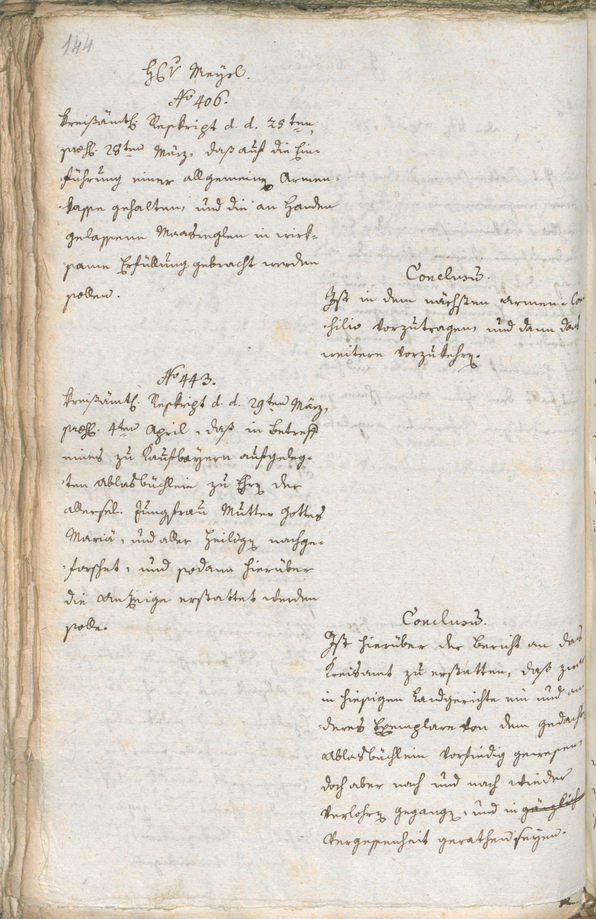 144
H. Meyrl.
No 406.
Kreißämtl. Reskript d. d. 25ten,
præs. 28ten März, daß auf die Ein¬
führung einer allgemeinen Armen
kasse gehalten, und die an Handen
gelassene Maasreglen in wirk¬
same Erfüllung gebracht werden
sollen.
Conclusum.
Ist in dem nächsten Armen-Con
silio vorzutragen, und dann das
weitere vorzukehren.
No 443.
Kreißämtl. Reskript d. d. 29ten März,
præs. 4ten April, daß in Betreff
eines zu Kaufbayern aufgeleg¬
ten Ablasbüchlein zu Ehren der
allersel. Jungfrau Mutter Gottes
Mariä, und aller Heiligen nachge¬
forschet, und sodann hierüber
die Anzeige erstattet werden
solle.
Conclusum.
Ist hierüber der Bericht an das
Kreisamt zu erstatten, daß zwar
in hiesigen Landgerichte ein und an
deres Exemplare von dem gedachten
Ablasbüchlein vorfindig gewesen,
doch aber nach und nach wieder
verlohren gegangen, und in gänzliche
Vergessenheit gerathen seyen.